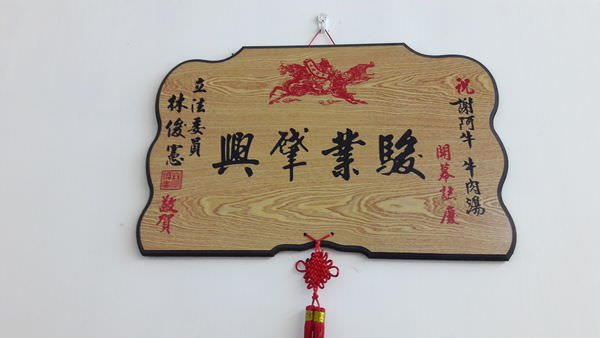 祝 謝阿牛 牛肉湯
開幕誌慶
駿業肇興
立法委員
林俊憲
敬賀